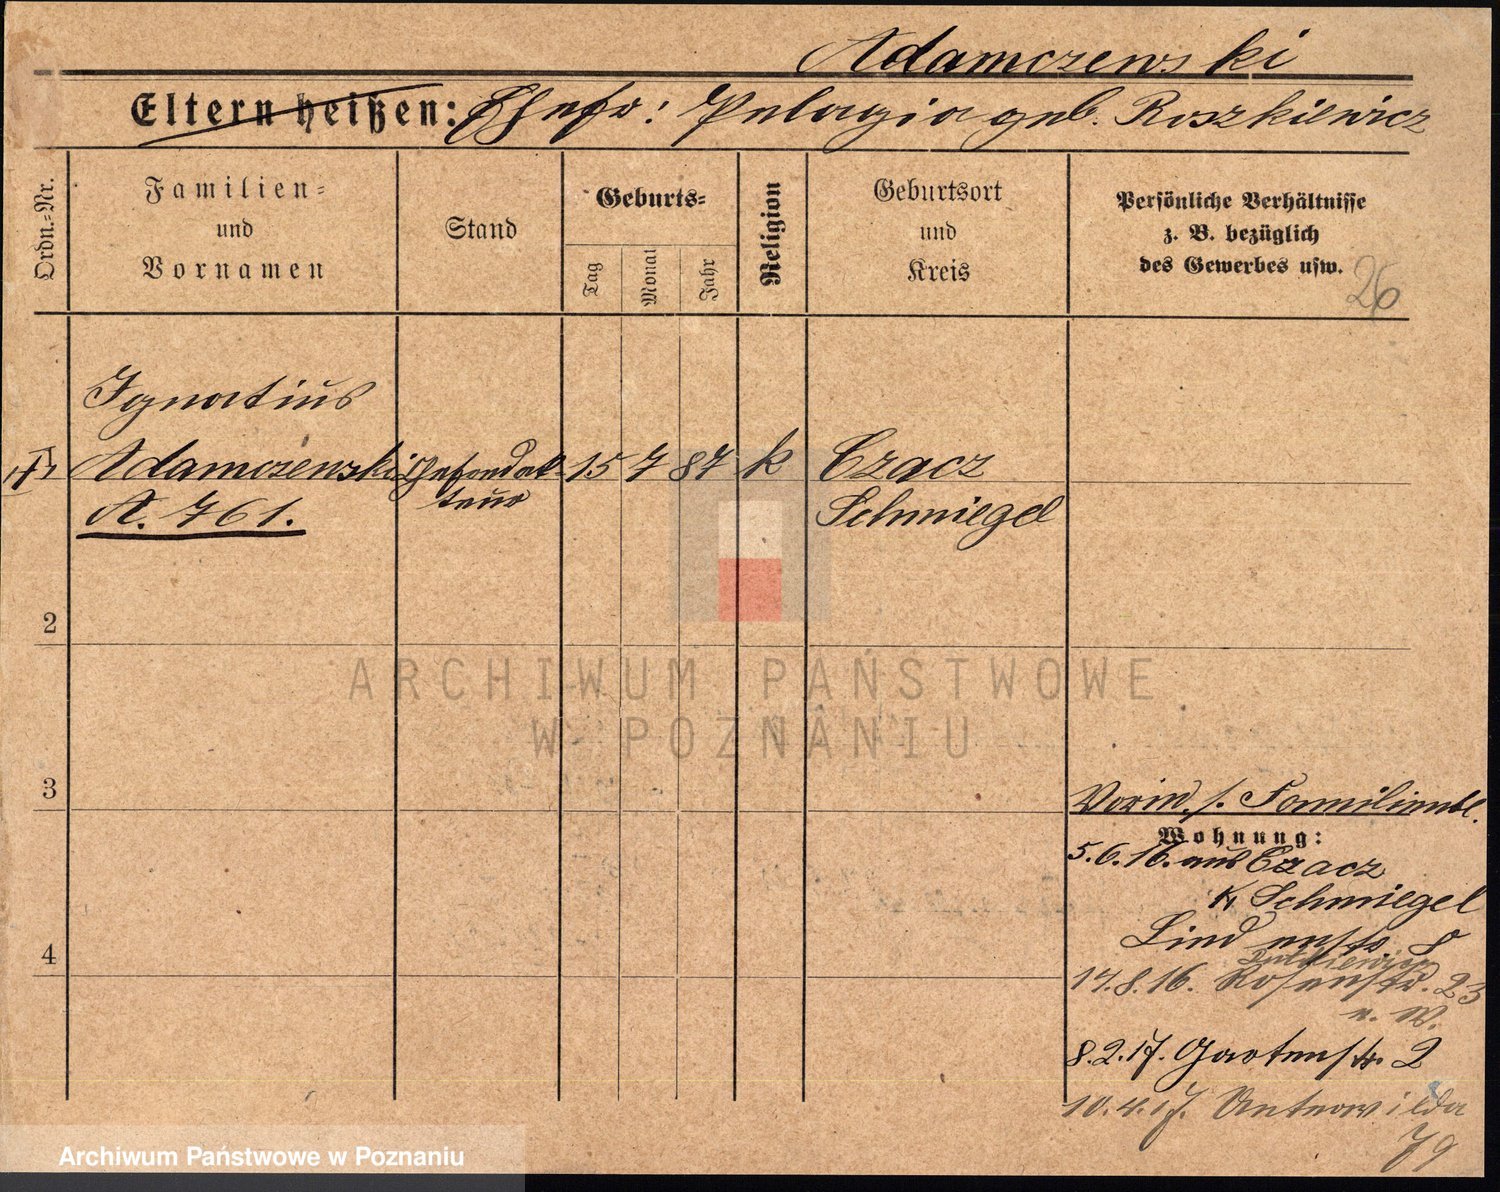 Adamczewski
Eltern heißen: Ehefr: Pelagia geb. Roszkiewicz
Ordn.=Nr.
Familien=
und
Vornamen
Stand
Geburts=
Tag
Monat
Jahr
Religion
Geburtsort
und
Kreis
Persönliche Verhältnisse
z. B. bezüglich
des Gewerbes usw.
26
Ignatius
Adamczewski Chefredak- 15 7 87 k Czacz
teur
A. 761.
Schmiegel
2
3
4
ARCHIWUM PAŃSTWOWE
W POZNANIU
Vorid. s. Familienbl.
Wohnung:
5.6.16. aus Czacz
Kr Schmiegel
Lindenstr. 8
17.8.16. Rosenstr. 23
n. W.
8.2.17. Gartenstr. 2
10.4.17. Unterwilda
79
Archiwum Państwowe w Poznaniu